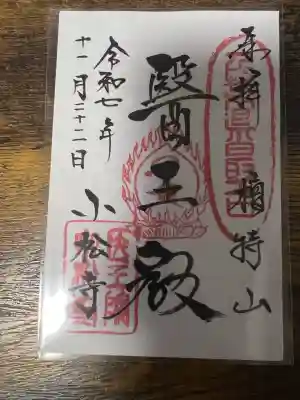 奉拝 檀特山
醫王殿
小松寺
令和七年
十一月二十二日